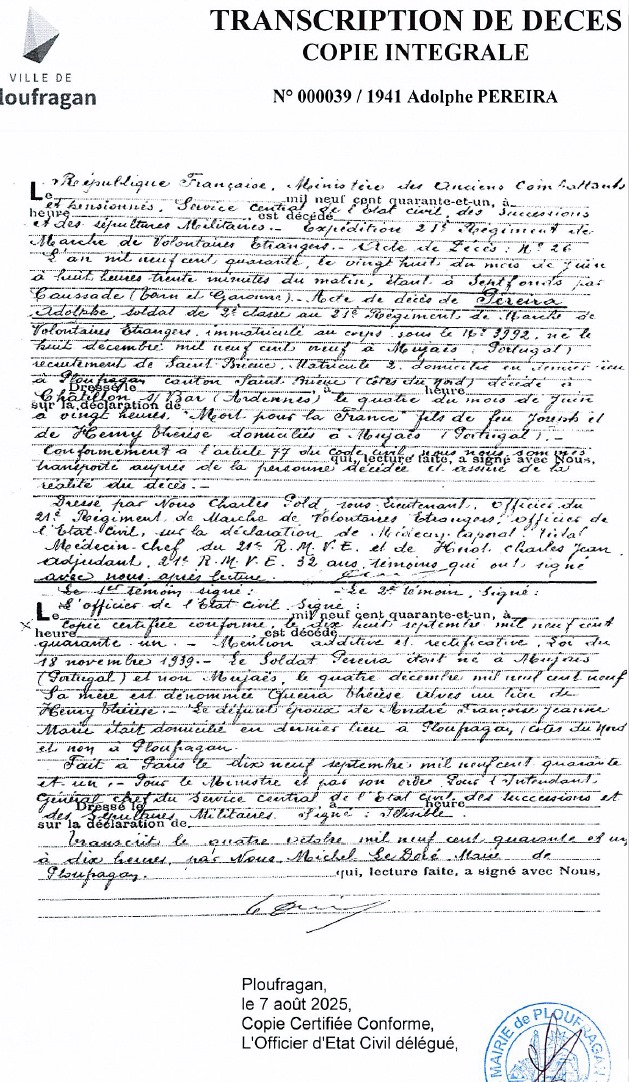 TRANSCRIPTION DE DECES
COPIE INTEGRALE
N° 000039 / 1941 Adolphe PEREIRA
VILLE DE
loufragan
République Française, Ministère des Anciens Combattants
Le mil neuf cent quarante-et-un, à
et Pensionnés, Service central de l'Etat civil, des Successions
heure est décédé
et des Sépultures Militaires.- Expédition 21e Régiment de
Marche de Volontaires Etrangers.- Acte de Décès : N° 26
L'an mil neuf cent quarante, le vingt huit du mois de Juin
à huit heures trente minutes du matin, étant à Septfonds par
Caussade (Tarn et Garonne).- Acte de décès de Péreira
Adolphe, soldat de 2e classe au 21e Régiment de Marche de
Volontaires Etrangers, immatriculé au corps sous le N° 3992, né le
huit décembre mil neuf cent neuf à Mujaès (Portugal)
recrutement de Saint Brieuc, Matricule 2. domicilié en dernier lieu
à Ploufragan canton Saint Brieuc (Côtes du Nord) décédé à
Dressé le à heure
Châtillon s/ Bar (Ardennes) le quatre du mois de Juin
sur la déclaration de
à vingt heures, "Mort pour la France" fils de feu Joseph et
de Henry Thérèse domiciliés à Mujaès (Portugal).-
Conformement à l'article 77 du code civil, nous nous sommes
qui, lecture faite, a signé avec Nous,
transporté auprès de la personne décédée et assuré de la
réalité du décès.-
Dressé par Nous Charles Gold, sous-lieutenant, Officier du
21e Régiment de Marche de Volontaires Etrangers, officier de
l'Etat-Civil, sur la déclaration de Médecin-Caporal Vidal
Médecin-chef du 21e R.M.V.E. et de Charles Jean
adjudant, 21e R.M.V.E. 32 ans, témoins qui ont signé
avec nous après lecture.
Le 1er témoin signé : - Le 2e témoin, signé :
L'officier de l'Etat civil Signé :
Le mil neuf cent quarante-et-un, à
Copie certifiée conforme, le dix huit septembre mil neuf cent
heure est décédé
quarante un.- Mention additive et rectificative, Loi du
18 novembre 1939.- Le Soldat Pereira était né à Mujous
(Portugal) et non Mujaès, le quatre décembre mil neuf cent neuf
Sa mère est dénommée Thérèse Alves au lieu de
Henry Thérèse.- Le défunt époux de André Françoise Jeanne
Marie était domicilié en dernier lieu à Ploufragan (Côtes du Nord
et non à Ploufagan.
Fait à Paris le dix neuf septembre mil neuf cent quarante
et un.- Pour le Ministre et par son ordre Pour l'Intendant
Général chef du Service central de l'Etat civil, des Successions et
Dressé le à heure
des Sépultures Militaires. Signé : Illisible.
sur la déclaration de
Transcrit le quatre octobre mil neuf cent quarante et un
à dix heures, par Nous Michel Le Doré Maire de
Ploufragan. qui, lecture faite, a signé avec Nous,
Ploufragan,
le 7 août 2025,
Copie Certifiée Conforme,
L'Officier d'Etat Civil délégué,
MAIRIE de PLOUFRAGAN